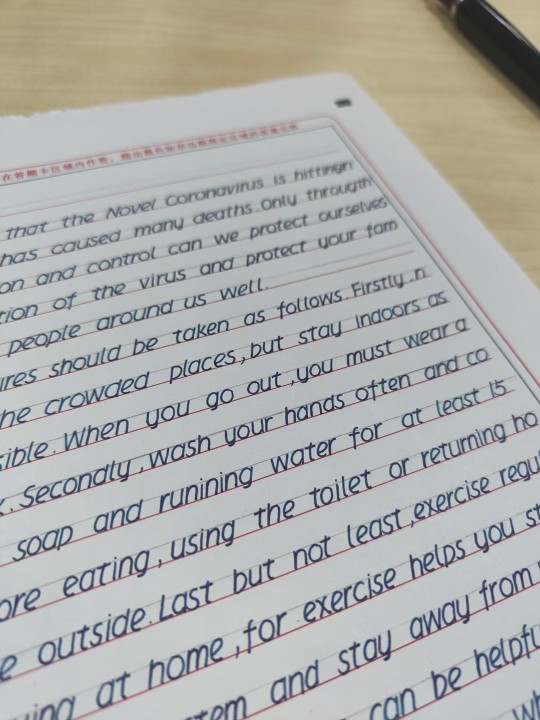 that the Novel Coronavirus is hittingn
has caused many deaths.Only through
on and control can we protect ourselves
tion of the virus and protect your fam
people around us well.
ures should be taken as follows.Firstly,n
he crowded places,but stay indoors as
sible.When you go out,you must wear a
k.Secondly,wash your hands often and co
soap and runining water for at least 15
ore eating,using the toilet or returning ho
e outside.Last but not least,exercise regul
ing at home,for exercise helps you st
tem and stay away from
can be helpfu
wh